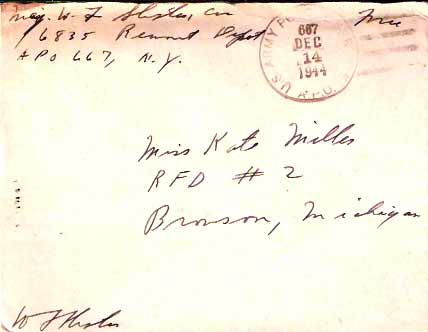 Maj. W. F.
6835 Remount Depot
APO 667, N.Y.
Free
U.S. ARMY
667
DEC
14
1944
A.P.O.
Miss Kate Milles
RFD # 2
Bronson, Michigan
W F